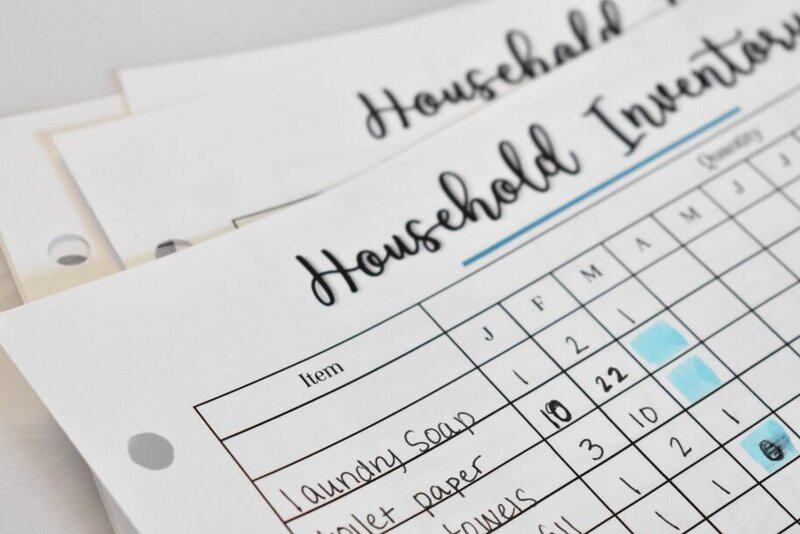 Household
Household Inventory
Quantity
Item J F M A M J J
laundry soap 1 2 1
toilet paper 10 22
towels 3 10
1 2 1
1 1 0